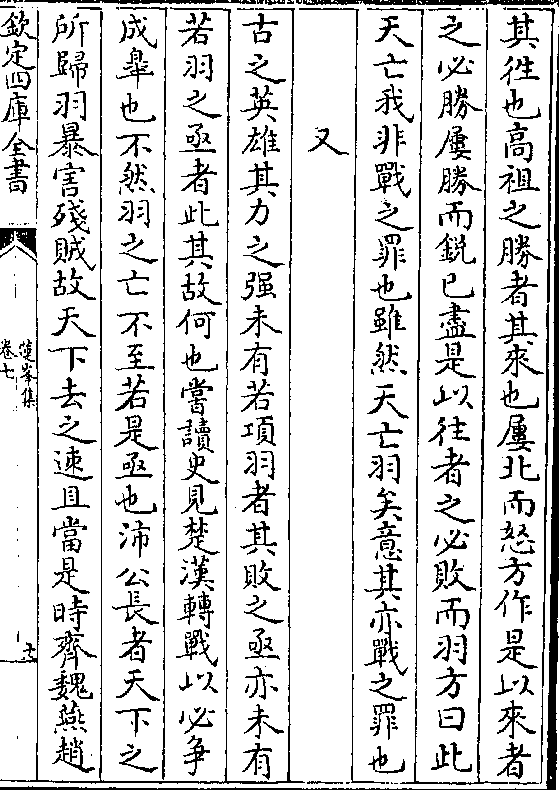 其徃也高祖之勝者其來也屢北而怒方作是以來者
之必勝屢勝而鋭已盡是以往者之必敗而羽方曰此
天亡我非戰之罪也雖然天亡羽矣意其亦戰之罪也
又
古之英雄其力之强未有若項羽者其敗之亟亦未有
若羽之亟者此其故何也嘗讀史見楚漢轉戰以必爭
成臯也不然羽之亡不至若是亟也沛公長者天下之
所歸羽暴害殘賊故天下去之速且當是時齊魏燕趙
欽定四庫全書
蓮峯集
卷七